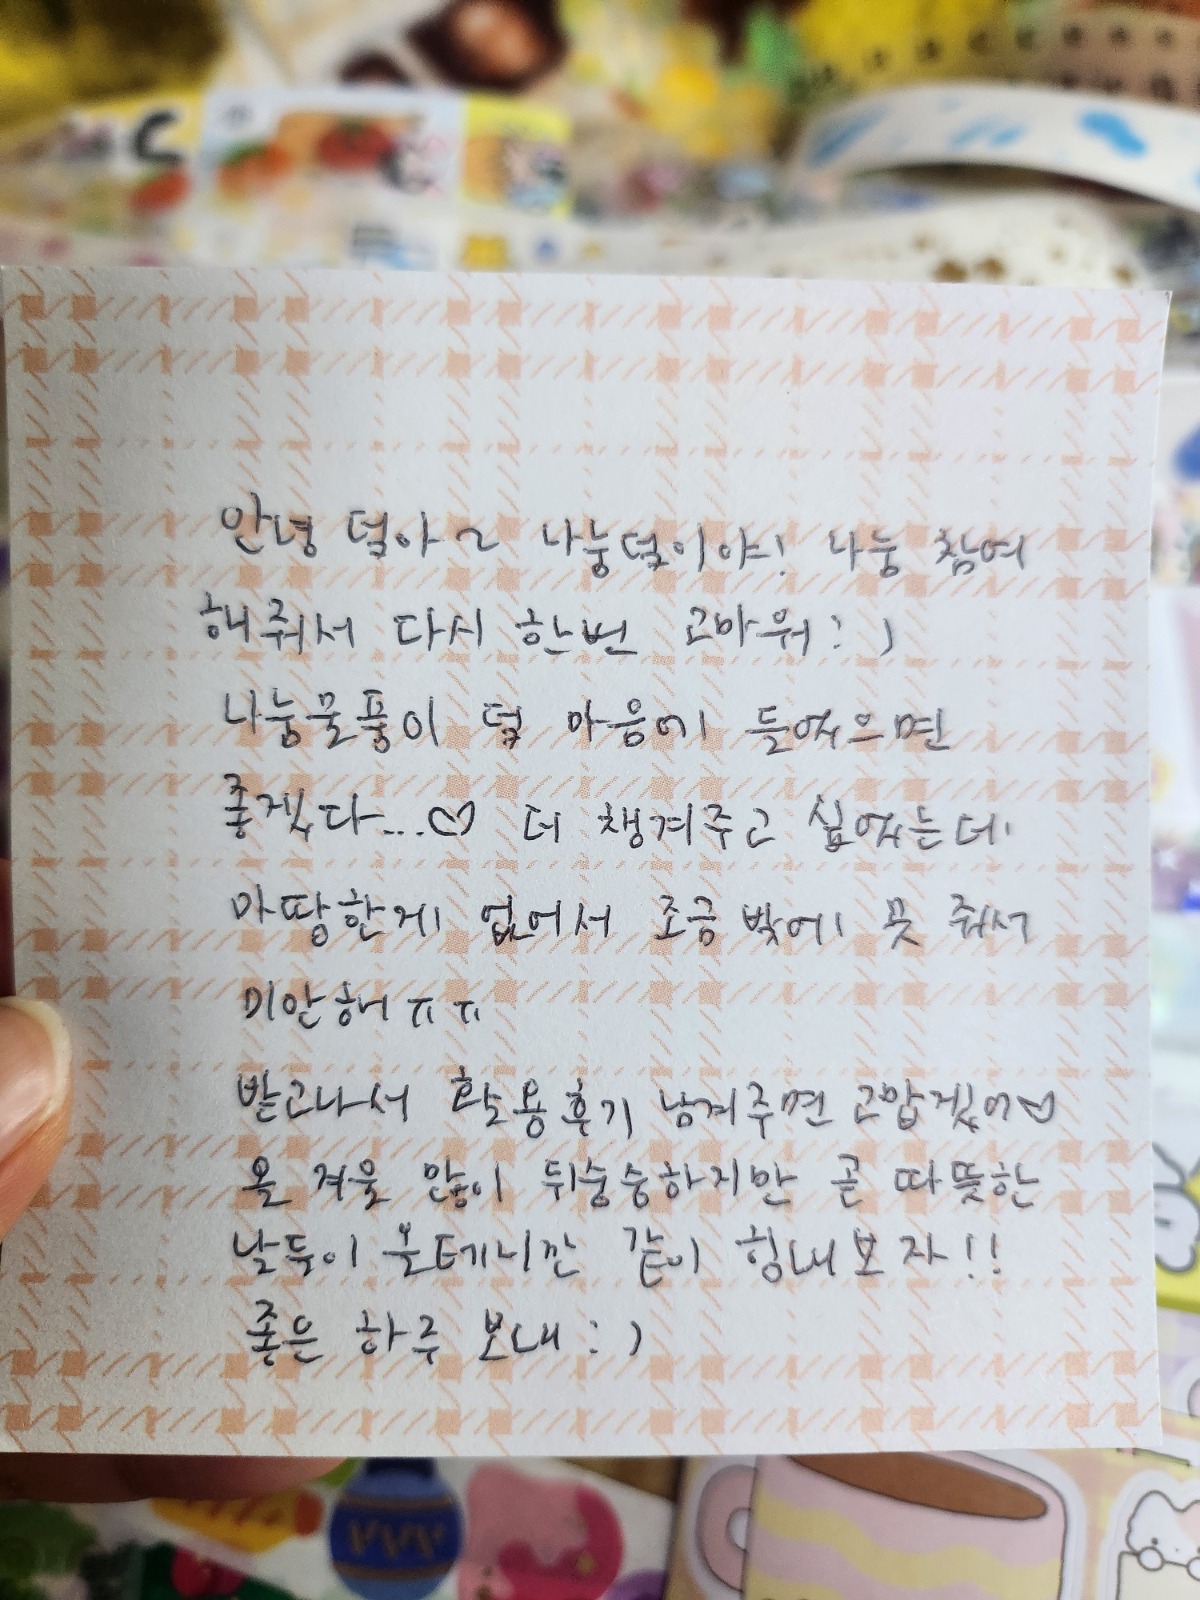 안녕 덬아~ 나눔덬이야! 나눔 참여
해줘서 다시 한번 고마워:)
나눔물품이 덬 마음에 들었으면
좋겠다...♡ 더 챙겨주고 싶었는데
마땅한게 없어서 조금밖에 못 줘서
미안해ㅠㅠ
받고나서 활용후기 남겨주면 고맙겠어♡
올 겨울 많이 뒤숭숭하지만 곧 따뜻한
날들이 올테니깐 같이 힘내보자!!
좋은 하루 보내:)
C